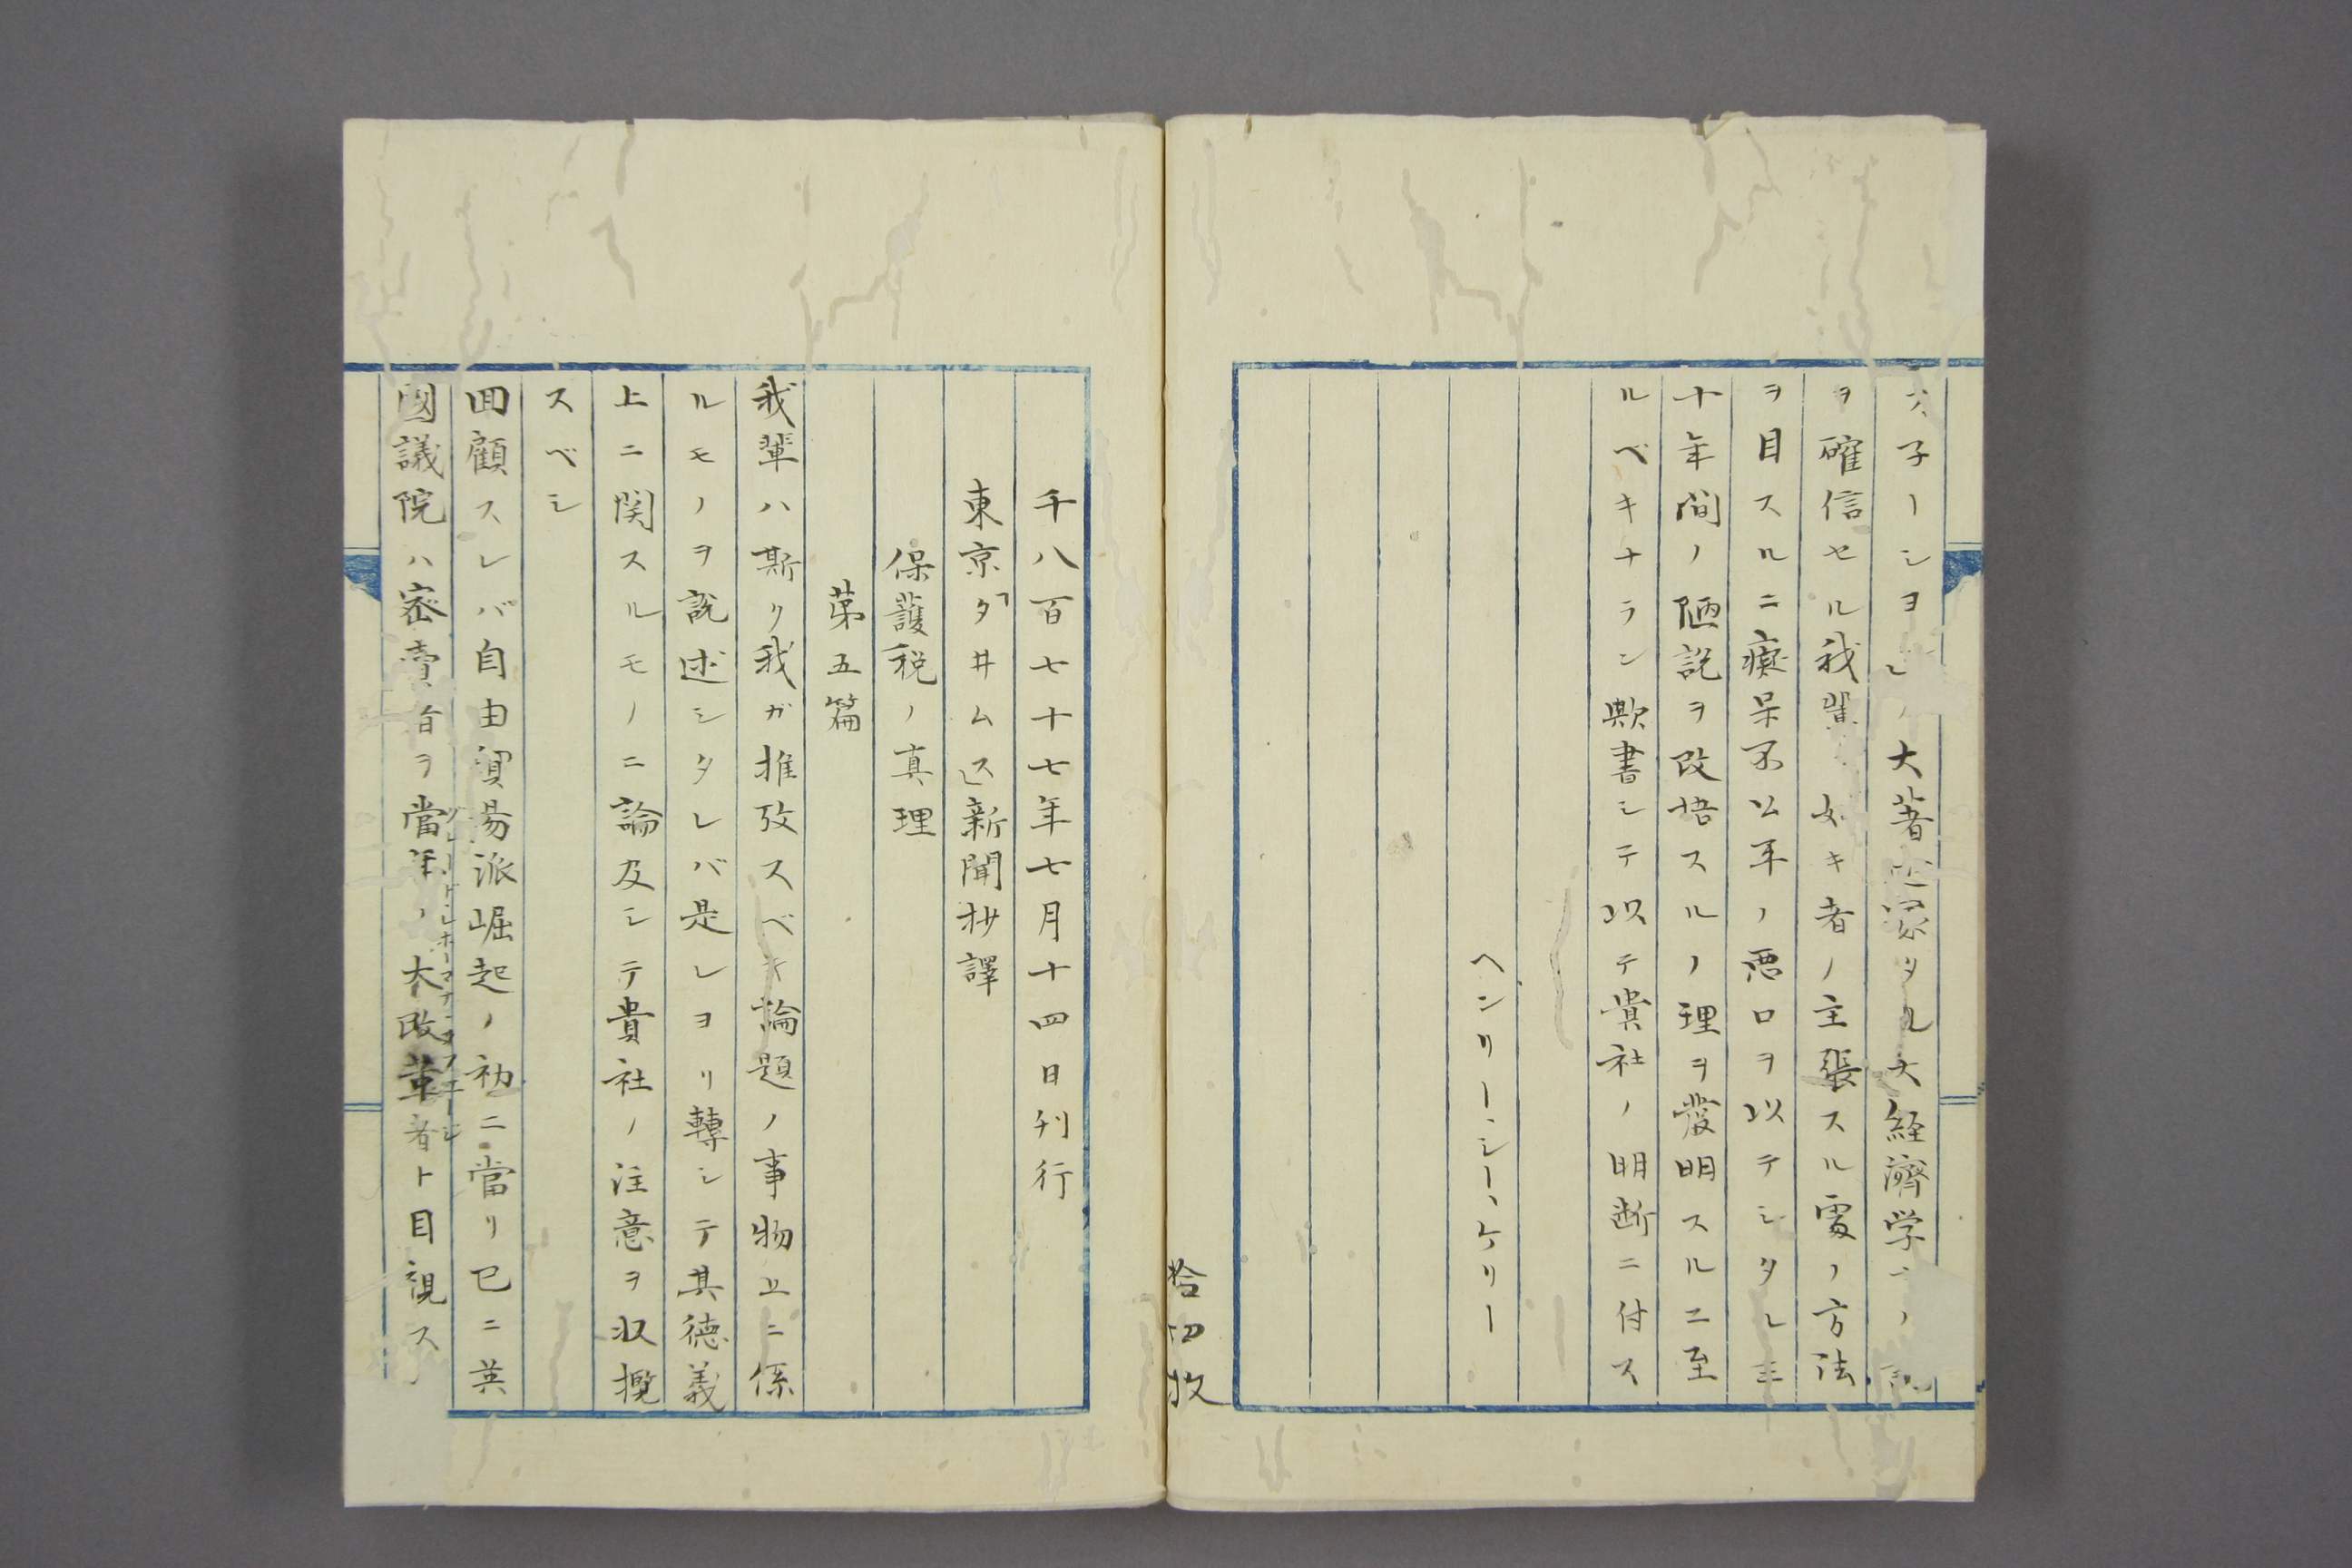 子ーシヨ ノ大著述家タル大経済学ーノ
ヲ確信セル我輩 如キ者ノ主張スル処ノ方法
ヲ目スルニ癡呆不公平ノ悪口ヲ以テシタレ𪜈
十年間ノ陋説ヲ改悟スルノ理ヲ発明スルニ至
ルベキナラン歟書シテ以テ貴社ノ明断ニ付ス
ヘンリー、シー、ケリー
拾四枚
千八百七十七年七月十四日刊行
東京「タ井ムス」新聞抄譯
保護税ノ真理
第五篇
我輩ハ斯ク我ガ推攷スベキ論題ノ事物上ニ係
ルモノヲ説述シタレバ是レヨリ轉シテ其徳義
上ニ関スルモノニ論及シテ貴社ノ注意ヲ収攬
スベシ
回顧スレバ自由貿易派崛起ノ初ニ當リ已ニ英
國議院ハ密賣者ヲ當年ノ大改革者ト目視ス